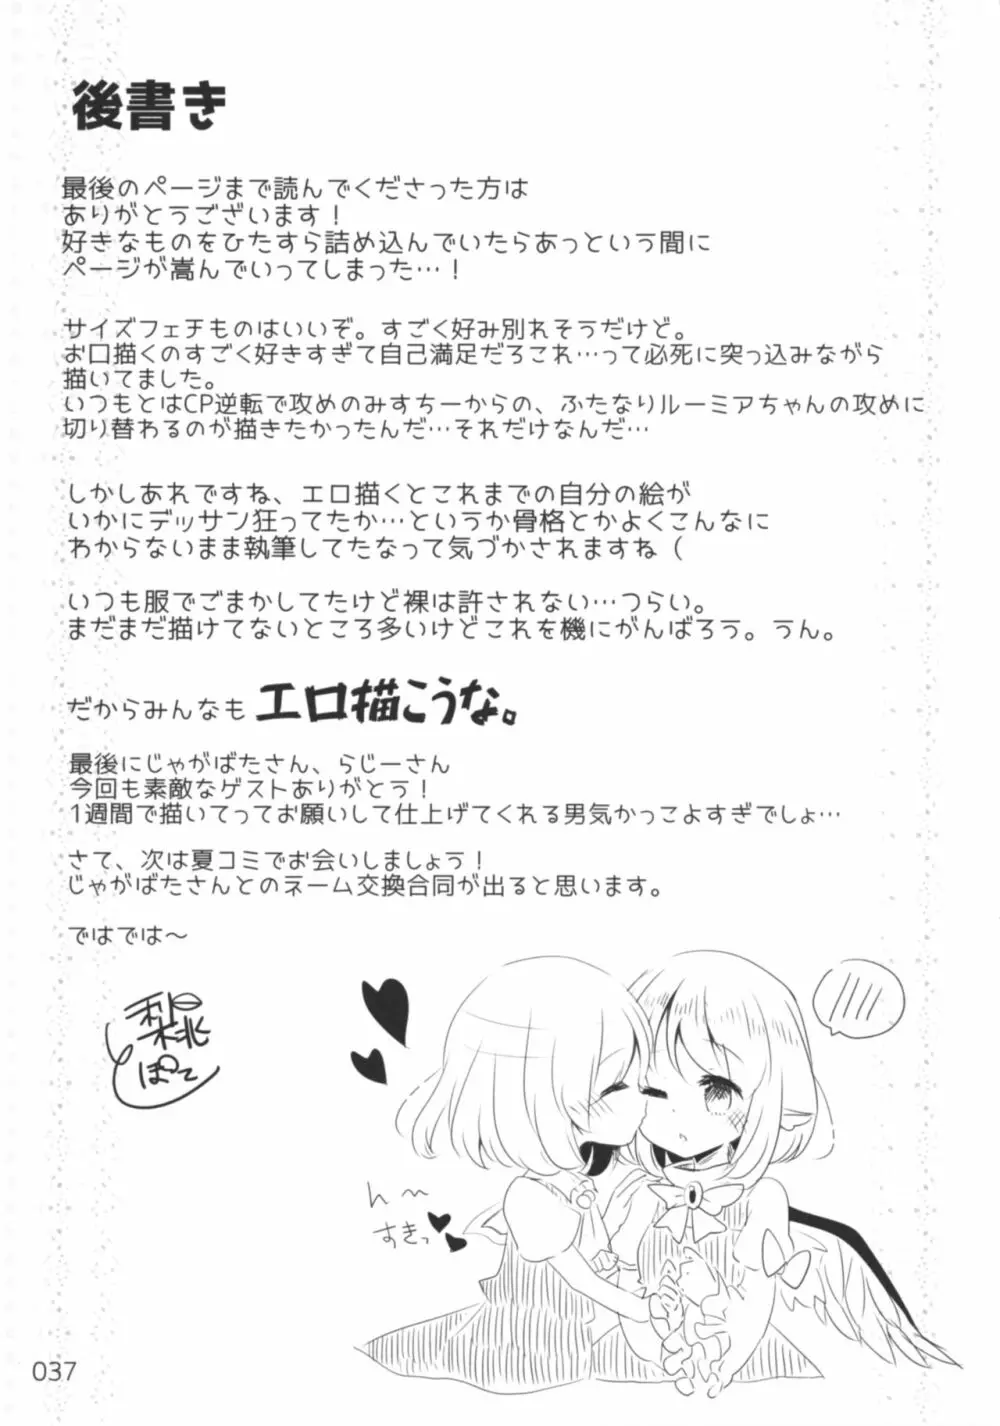 後書き
最後のページまで読んでくださった方は
ありがとうございます！
好きなものをひたすら詰め込んでいたらあっという間に
ページが嵩んでいってしまった…！
サイズフェチものはいいぞ。すごく好み別れそうだけど。
お口描くのすごく好きすぎて自己満足だろこれ…って必死に突っ込みながら
描いてました。
いつもとはCP逆転で攻めのみすちーからの、ふたなりルーミアちゃんの攻めに
切り替わるのが描きたかったんだ…それだけなんだ…
しかしあれですね、エロ描くとこれまでの自分の絵が
いかにデッサン狂ってたか…というか骨格とかよくこんなに
わからないまま執筆してたなって気づかされますね（
いつも服でごまかしてたけど裸は許されない…つらい。
まだまだ描けてないところ多いけどこれを機にがんばろう。うん。
だからみんなも エロ描こうな。
最後にじゃがばたさん、らじーさん
今回も素敵なゲストありがとう！
1週間で描いてってお願いして仕上げてくれる男気かっこよすぎでしょ…
さて、次は夏コミでお会いしましょう！
じゃがばたさんとのネーム交換合同が出ると思います。
ではでは～
梨桃
ぽって
ん～
すきっ
037